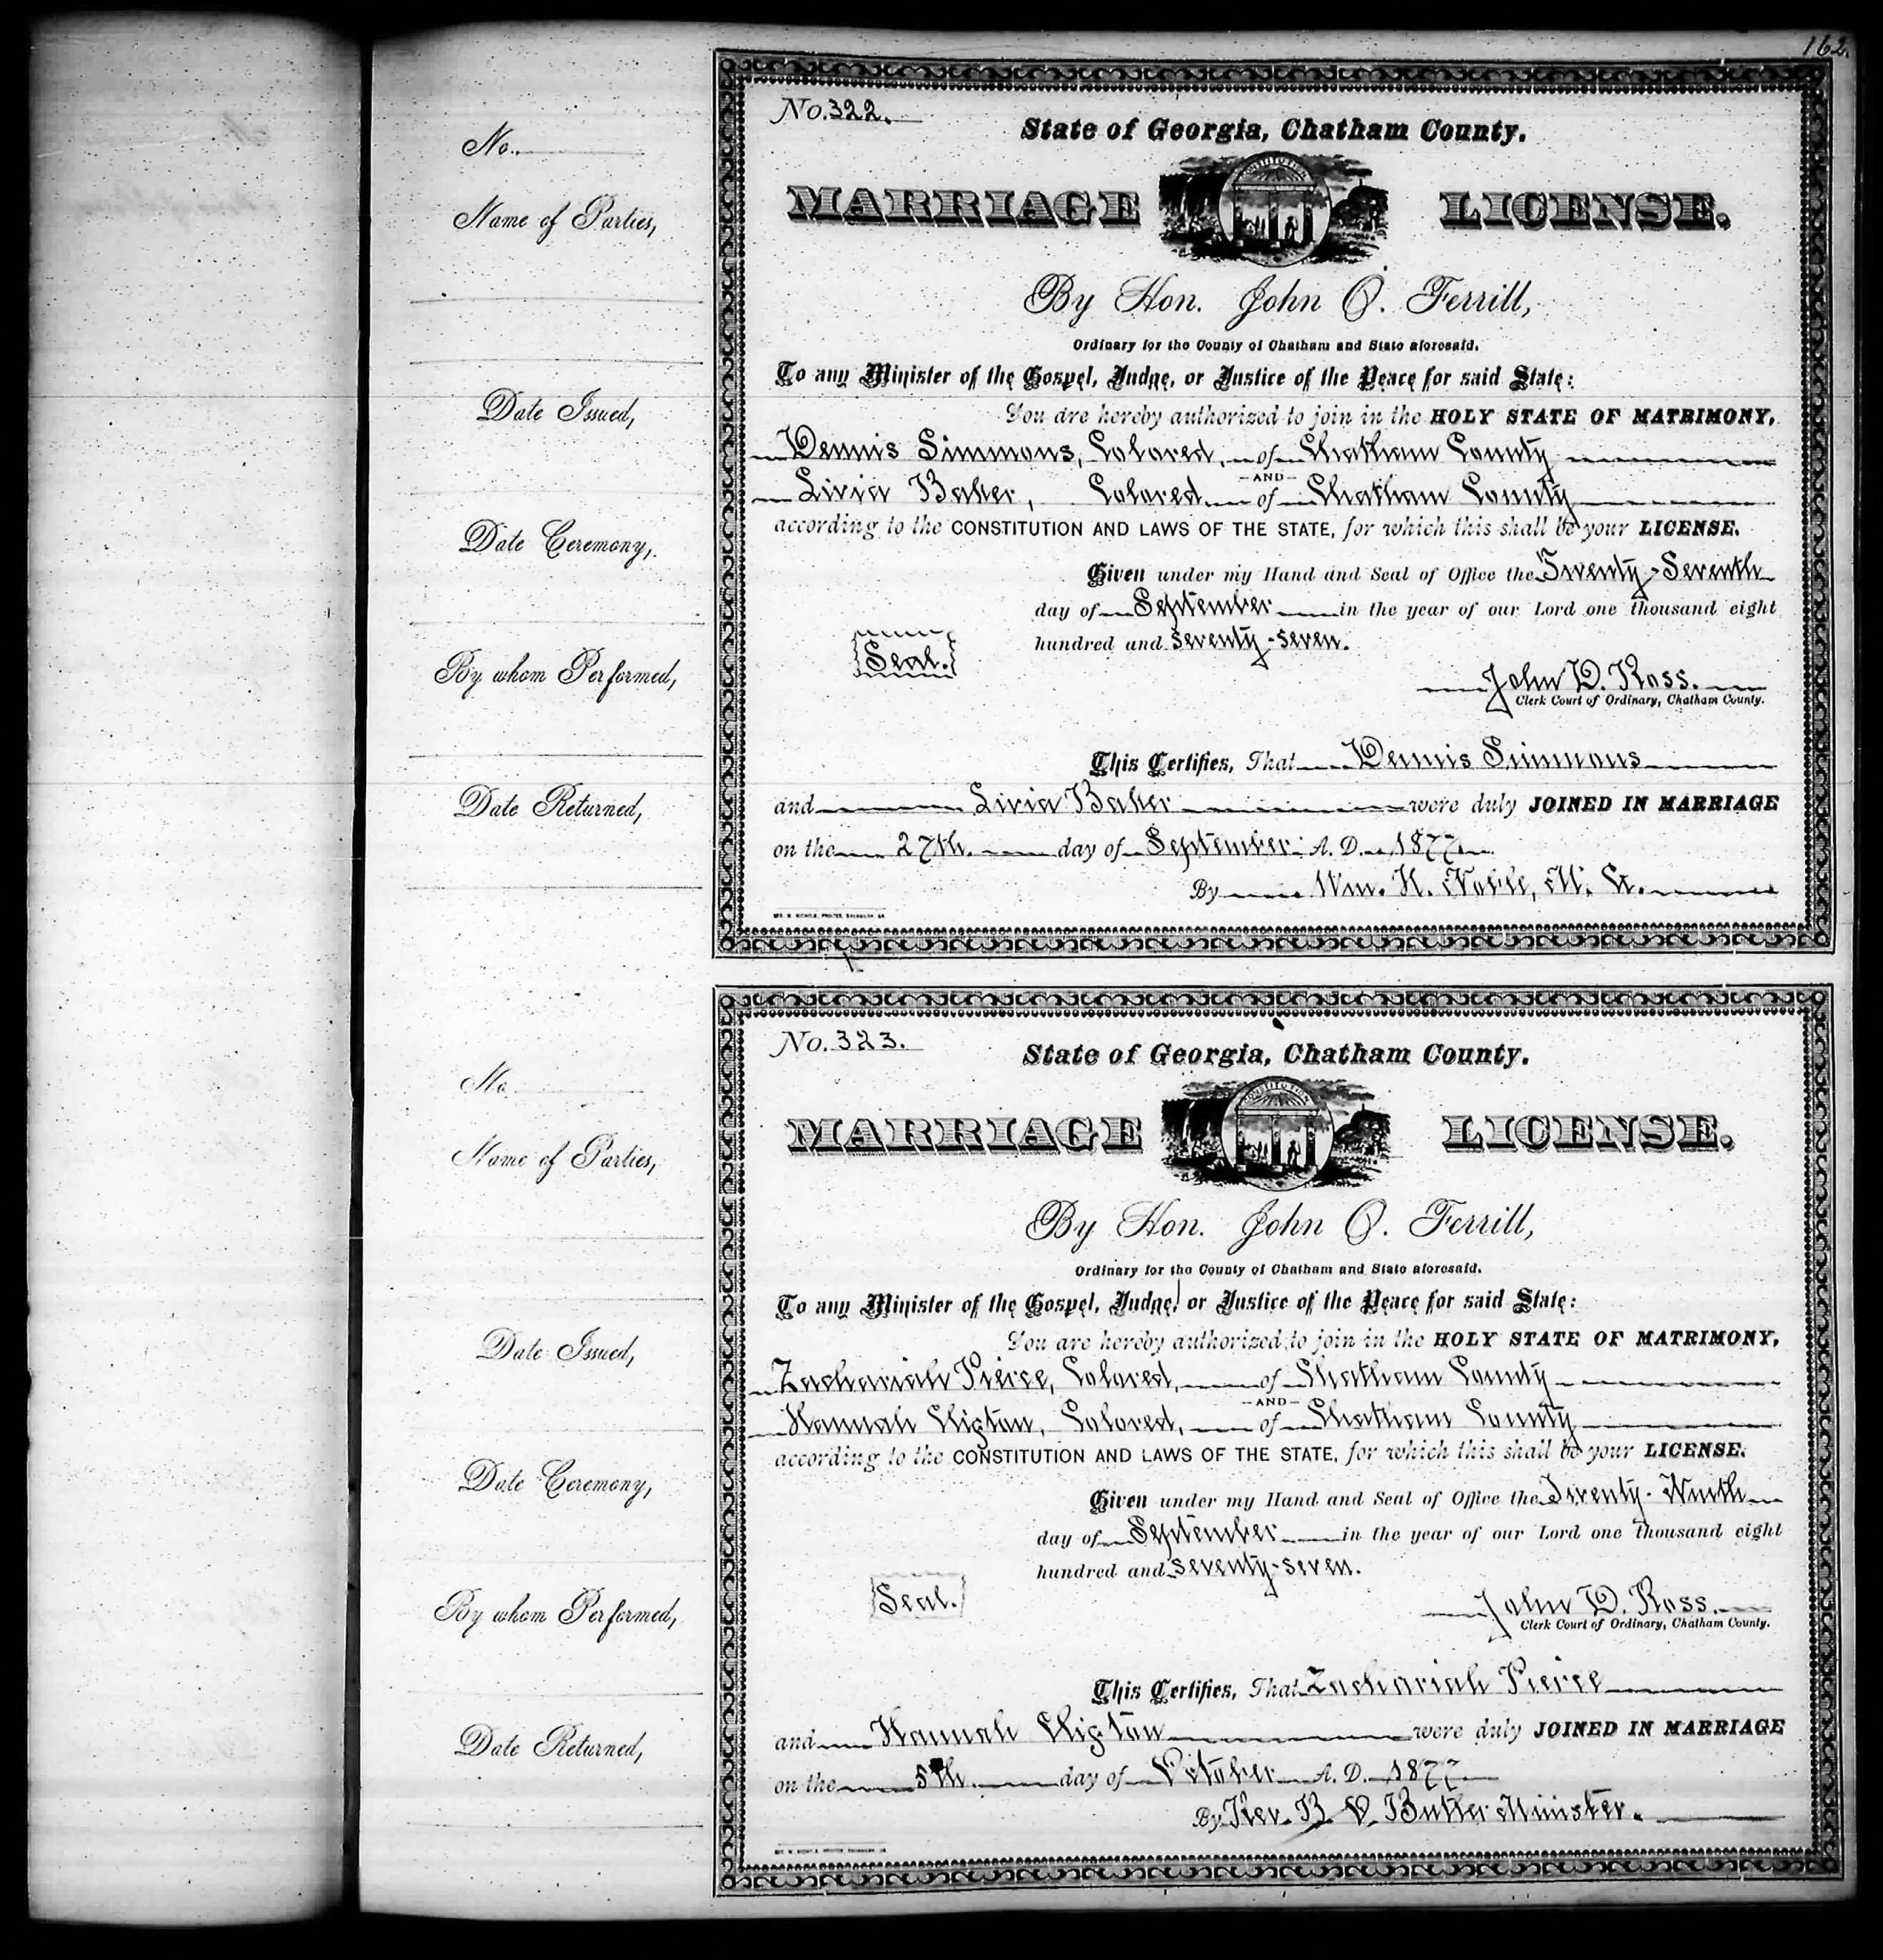 162.
No.
Name of Parties,
Date Issued,
Date Ceremony,
By whom Performed,
Date Returned,
No. 322.
State of Georgia, Chatham County.
MARRIAGE LICENSE.
By Hon. John O. Ferrill,
Ordinary for the County of Chatham and State aforesaid.
To any Minister of the Gospel, Judge, or Justice of the Peace for said State:
You are hereby authorized to join in the HOLY STATE OF MATRIMONY,
Dennis Simmons, Colored, of Chatham County
—AND—
Livia Baker, Colored of Chatham County
according to the CONSTITUTION AND LAWS OF THE STATE, for which this shall be your LICENSE.
Given under my Hand and Seal of Office the Twenty-Seventh
day of September in the year of our Lord one thousand eight
hundred and seventy-seven.
Seal.
John D. Ross.
Clerk Court of Ordinary, Chatham County.
This Certifies, That Dennis Simmons
and Livia Baker were duly JOINED IN MARRIAGE
on the 27th. day of September A. D. 1877
By Wm. H. Noble, M. G.
No.
Name of Parties,
Date Issued,
Date Ceremony,
By whom Performed,
Date Returned,
No. 323.
State of Georgia, Chatham County.
MARRIAGE LICENSE.
By Hon. John O. Ferrill,
Ordinary for the County of Chatham and State aforesaid.
To any Minister of the Gospel, Judge, or Justice of the Peace for said State:
You are hereby authorized to join in the HOLY STATE OF MATRIMONY,
Zachariah Pierce, Colored, of Chatham County
—AND—
Hannah Cligton, Colored, of Chatham County
according to the CONSTITUTION AND LAWS OF THE STATE, for which this shall be your LICENSE.
Given under my Hand and Seal of Office the Twenty-Ninth
day of September in the year of our Lord one thousand eight
hundred and seventy-seven.
Seal.
John D. Ross.
Clerk Court of Ordinary, Chatham County.
This Certifies, That Zachariah Pierce
and Hannah Cligton were duly JOINED IN MARRIAGE
on the 5th. day of October A. D. 1877
By Rev. B. O. Butler Minister.